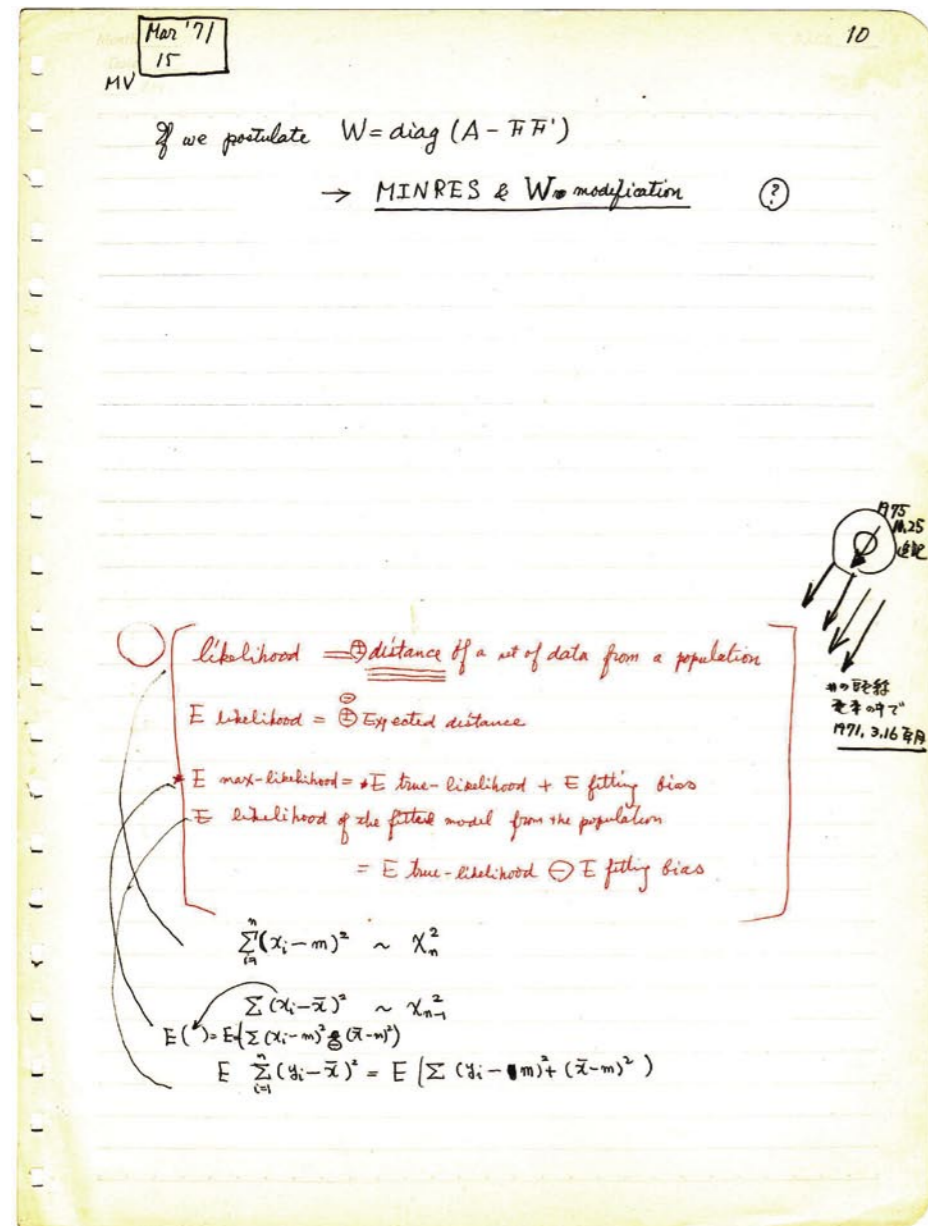 Mar '71
15
10
MV
If we postulate W = diag (A - F F')
→ MINRES & W modification ?
1975
追記
likelihood = ± distance of a set of data from a population
E likelihood = ± Expected distance
* E max-likelihood = E true-likelihood + E fitting bias
E likelihood of the fitted model from the population
= E true-likelihood ⊖ E fitting bias
の中で
1971, 3.16
n∑i=1 (xi - m)² ~ χ²n
∑ (xi - x̄)² ~ χ²n-1
E( ) = E{∑ (xi - m)² ⊖ (x̄ - m)²)
E n∑i=1 (yi - x̄)² = E (∑ (yi - m)² + (x̄ - m)² )